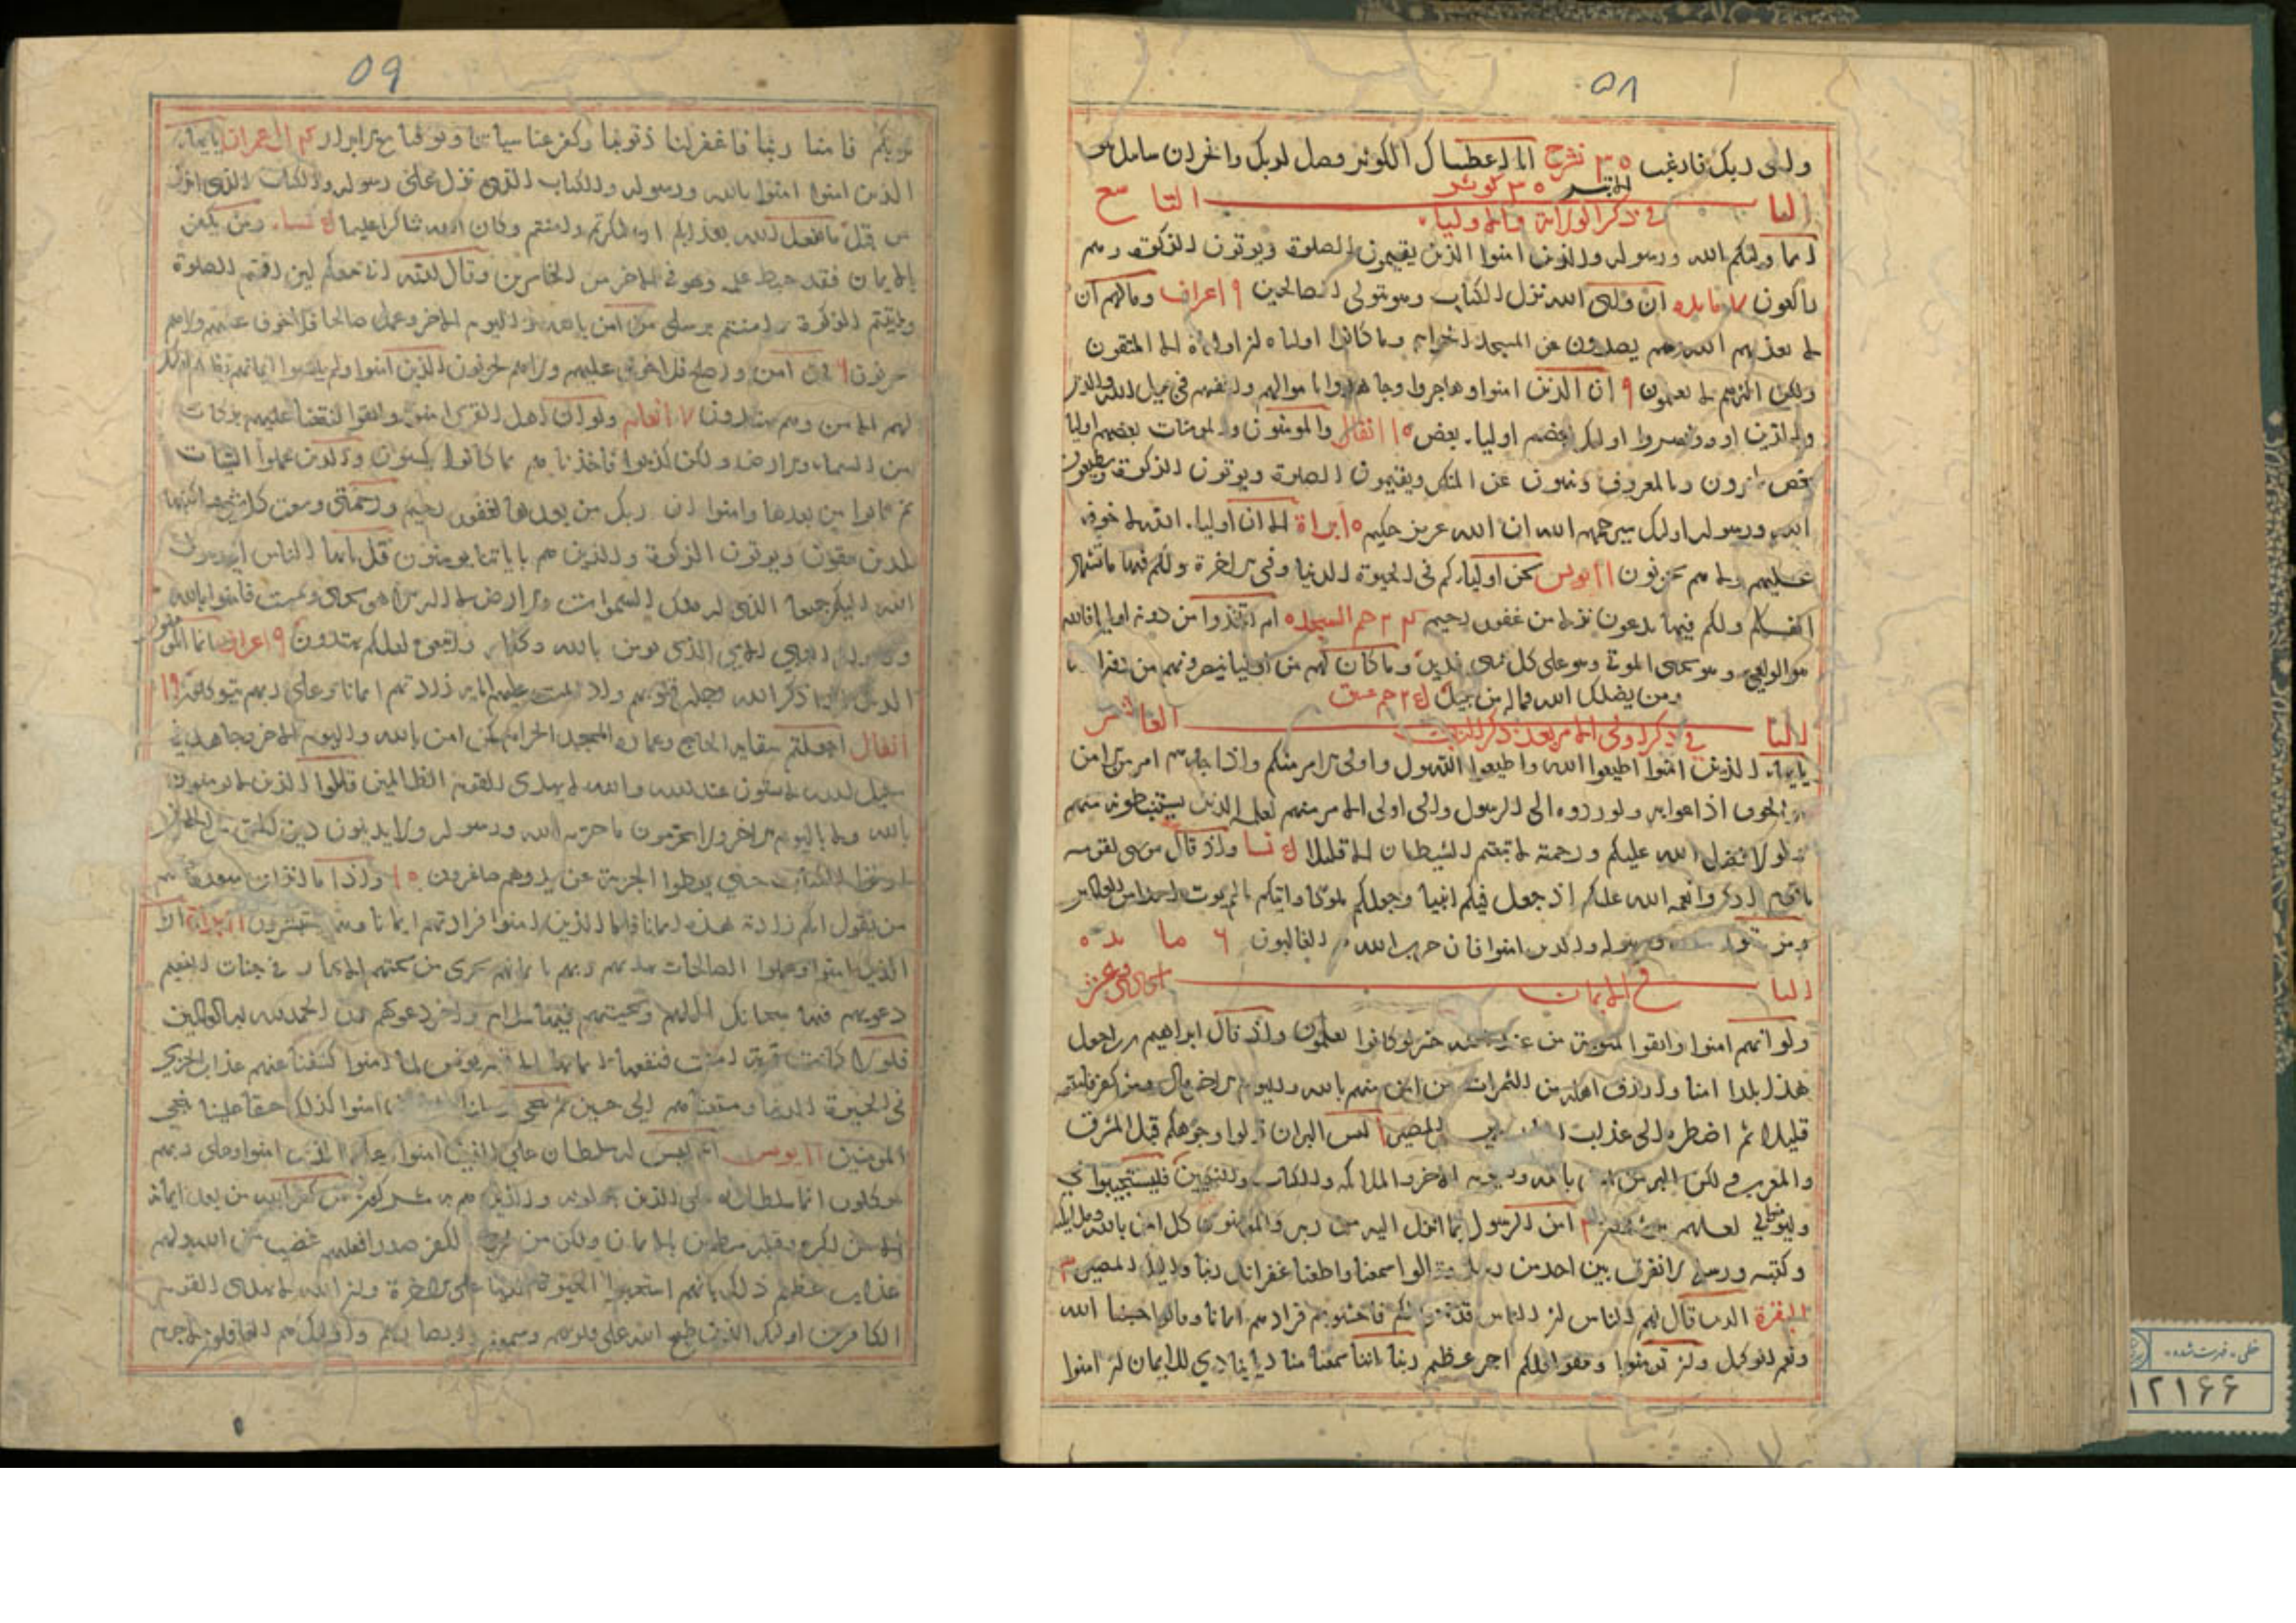 ٥٨
والى ربك فارغب ٣٠ نشرح انا اعطيناك الكوثر فصل لربك وانحر ان شانئك هو
الابتر ٣٠ كوثر
الباب التاسع
في ذكر الولاية والاولياء
انما وليكم الله ورسوله والذين امنوا الذين يقيمون الصلوة ويوتون الزكوة وهم
راكعون ٧ مايده ان ولى الله نزل الكتاب وهو يتولى الصالحين ٩ اعراف ومالهم ان
لا يعذبهم الله وهم يصدون عن المسجد الحرام وما كانوا اولياه ان اولياه الا المتقون
ولكن اكثرهم لا يعلمون ٩ ان الذين امنوا وهاجروا وجاهدوا باموالهم وانفسهم في سبيل الله والذين
والذين اووا ونصروا اولئك بعضهم اولياء بعض ١٠ انفال والمومنون والمومنات بعضهم اوليا
بعض يامرون بالمعروف وينهون عن المنكر ويقيمون الصلوة ويوتون الزكوة ويطيعون
الله ورسوله اولئك سيرحمهم الله ان الله عزيز حكيم ١٠ براة الا ان اولياء الله لا خوف
عليهم ولا هم يحزنون ١١ يونس نحن اولياءكم في الحيوة الدنيا وفي الاخرة ولكم فيها ما تشتهى
انفسكم ولكم فيها ما تدعون نزلا من غفور رحيم ٢٤ حم السجده ام اتخذوا من دونه اوليا فالله
هو الولى وهو يحيى الموتى وهو على كل شى قدير وما كان لهم من اوليا ينصرونهم من دون الله
ومن يضلل الله فماله من سبيل ٢٥ حم عسق
الباب العاشر
في ذكر اولى الامر بعد ذكر
يا ايها الذين امنوا اطيعوا الله واطيعوا الرسول واولى الامر منكم واذا جاءهم امر من الامن
او الخوف اذاعوا به ولو ردوه الى الرسول والى اولى الامر منهم لعلمه الذين يستنبطونه منهم
ولولا فضل الله عليكم ورحمته لاتبعتم الشيطان الا قليلا ٥ نسا واذ قال موسى لقومه
يا قوم اذكروا نعمه الله عليكم اذ جعل فيكم انبيا وجعلكم ملوكا واتيكم مالم يوت احدا من العالمين
ومن يتول الله ورسوله والذين امنوا فان حزب الله هم الغالبون ٦ مايده
الباب الحادى عشر
في الايمان
ولو انهم امنوا واتقوا لمثوبة من عند الله خير لو كانوا يعلمون واذ قال ابراهيم رب اجعل
هذا بلدا امنا وارزق اهله من الثمرات من امن منهم بالله واليوم الاخر قال ومن كفر فامتعه
قليلا ثم اضطره الى عذاب النار وبئس المصير ١ ليس البر ان تولوا وجوهكم قبل المشرق
والمغرب ولكن البر من امن بالله واليوم الاخر والملائكه والكتاب والنبيين فليستجيبوا لي
وليومنوا بي لعلهم يرشدون ٢ امن الرسول بما انزل اليه من ربه والمومنون كل امن بالله وملائكته
وكتبه ورسله لا نفرق بين احد من رسله وقالوا سمعنا واطعنا غفرانك ربنا واليك المصير ٣
البقرة الذين قال لهم الناس ان الناس قد جمعوا لكم فاخشوهم فزادهم ايمانا وقالوا حسبنا الله
ونعم الوكيل وان تومنوا وتتقوا فلكم اجر عظيم ربنا اننا سمعنا مناديا ينادي للايمان ان امنوا
٥٩
بربكم فامنا ربنا فاغفر لنا ذنوبنا وكفر عنا سياتنا وتوفنا مع الابرار ٤ ال عمران يا ايها
الذين امنوا امنوا بالله ورسوله والكتاب الذى نزل على رسوله والكتاب الذى انزل
من قبل ما يفعل الله بعذابكم ان شكرتم وامنتم وكان الله شاكرا عليما ٥ نسا ومن يكفر
بالايمان فقد حبط عمله وهو في الاخرة من الخاسرين وقال الله انى معكم لئن اقمتم الصلوة
واتيتم الزكوة وامنتم برسلى من امن بالله واليوم الاخر وعمل صالحا فلا خوف عليهم ولا هم
يحزنون ٦ فمن امن واصلح فلا خوف عليهم ولا هم يحزنون الذين امنوا ولم يلبسوا ايمانهم بظلم اولئك
لهم الامن وهم مهتدون ٧ انعام ولو ان اهل القرى امنوا واتقوا لفتحنا عليهم بركات
من السماء والارض ولكن كذبوا فاخذناهم بما كانوا يكسبون والذين عملوا السيات
ثم تابوا من بعدها وامنوا ان ربك من بعدها لغفور رحيم ورحمتى وسعت كل شى فساكتبها
للذين يتقون ويوتون الزكوة والذين هم باياتنا يومنون قل يا ايها الناس انى رسول
الله اليكم جميعا الذى له ملك السموات والارض لا اله الا هو يحيى ويميت فامنوا بالله
ورسوله النبى الامى الذى يومن بالله وكلماته واتبعوه لعلكم تهتدون ٩ اعراف انما المومنون
الذين اذا ذكر الله وجلت قلوبهم واذا تليت عليهم اياته زادتهم ايمانا وعلى ربهم يتوكلون ٩
انفال اجعلتم سقايه الحاج وعمارة المسجد الحرام كمن امن بالله واليوم الاخر وجاهد في
سبيل الله لا يستون عند الله والله لا يهدى القوم الظالمين قاتلوا الذين لا يومنون
بالله ولا باليوم الاخر ولا يحرمون ما حرم الله ورسوله ولا يدينون دين الحق من الذين
اوتوا الكتاب حتى يعطوا الجزية عن يد وهم صاغرون ١٠ واذا ما انزلت سورة فمنهم
من يقول ايكم زادته هذه ايمانا فاما الذين امنوا فزادتهم ايمانا وهم يستبشرون ١١ براة ان
الذين امنوا وعملوا الصالحات يهديهم ربهم بايمانهم تجرى من تحتهم الانهار في جنات النعيم
دعويهم فيها سبحانك اللهم وتحيتهم فيها سلام واخر دعويهم ان الحمد لله رب العالمين
فلولا كانت قرية امنت فنفعها ايمانها الا قوم يونس لما امنوا كشفنا عنهم عذاب الخزى
في الحيوة الدنيا ومتعناهم الى حين ثم ننجى رسلنا والذين امنوا كذلك حقا علينا ننجى
المومنين ١١ يونس انه ليس له سلطان على الذين امنوا وعلى ربهم
يتوكلون انما سلطانه على الذين يتولونه والذين هم به مشركون من كفر بالله من بعد ايمانه
الا من اكره وقلبه مطمئن بالايمان ولكن من شرح بالكفر صدرا فعليهم غضب من الله ولهم
عذاب عظيم ذلك بانهم استحبوا الحيوة الدنيا على الاخرة وان الله لا يهدى القوم
الكافرين اولئك الذين طبع الله على قلوبهم وسمعهم وابصارهم واولئك هم الغافلون لا جرم
خطی - فهرست شده
١٢١۶۶